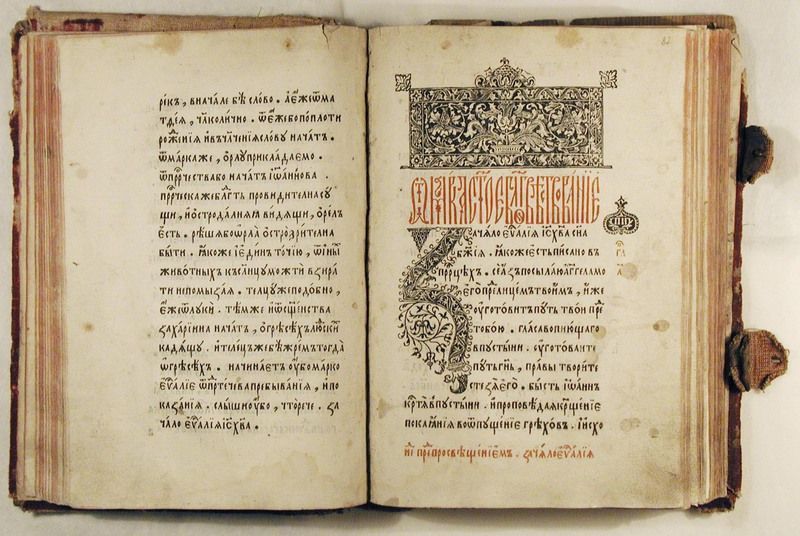 рекъ, вначале бѣ слово. а еже ѿма
тдѣя, чл҃колично. ѿ еже бо поплоти
рожениꙗ ивъчл҃чениꙗ слову начатъ.
ѿ марка же, орлу прикладаемо.
ѿ прр҃чества бо начатъ іѡаннова.
прр҃ческа же бл҃гть провидителна су
щи, и остро далняꙗ видящи, орелъ
есть. рѣша бо ѡрла острозрителна
быти. ꙗкоже і единъ точію, ѿ инѣ
животныхъ къ слн҃цу можти взира
ти непомызая. телцу же подобно,
еже ѿ луки. тѣмже и ѿ сщ҃енства
захаріина начатъ, о грѣсѣхъ людски
кадящу. и телецъ же бѣ жремъ тогда
ѡ грѣсѣхъ. начинает убо марко
еѵ҃аліе ѿ прт҃ечева пребываніꙗ, и по
казаніꙗ. слыши убо, что рече. за
чало еѵ҃аліꙗ іс҃ хв҃а.
82
зачяло еѵ҃аліꙗ іс҃ хв҃а сн҃а
бж҃іꙗ. ꙗкоже есть писано въ
прр҃цѣхъ. се азъ посылаю аг҃гелъ мо
его пре лицемъ твоимъ, иже
уготовитъ путь твои пре
тобою. глас вопиющаго
в пустыни. уготоваите
путь гн҃ь, правы творите
стезя его. бысть іѡаннъ
крт҃я в пустыни. и проповѣдая крщ҃еніе
покаꙗніꙗ во ѿпущеніе грѣховъ. и исхо
не пре просвѣщеніемъ. зачяло еѵ҃аліꙗ